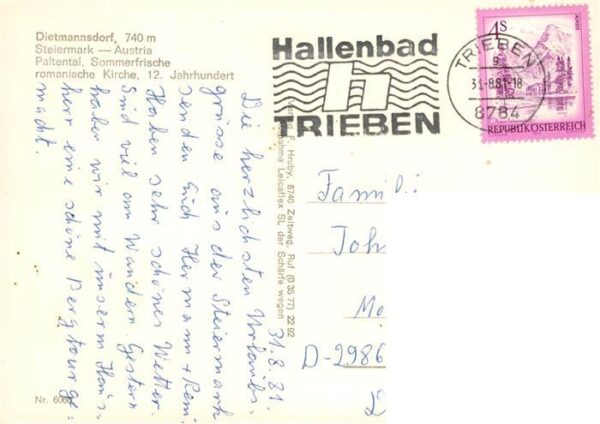 Dietmannsdorf, 740 m
Steiermark — Austria
Paltental, Sommerfrische
romanische Kirche, 12. Jahrhundert
Hallenbad
TRIEBEN
TRIEBEN
31.-8.81-18
8784
4S
REPUBLIK ÖSTERREICH
F. Hruby, 8740 Zeltweg, Ruf (0 35 77) 22 92
Leicaflex SL der Schärfe wegen
31.8.81.
Die herzlichsten Urlaubs-
grüsse aus der Steiermark
senden Euch Hermann + Reni
Haben sehr schönes Wetter.
Sind viel am Wandern. Gestern
haben wir mit unserm Haus=
herr eine schöne Bergtour ge=
macht.
Famili
Joh
Mo
D-2986
Nr.